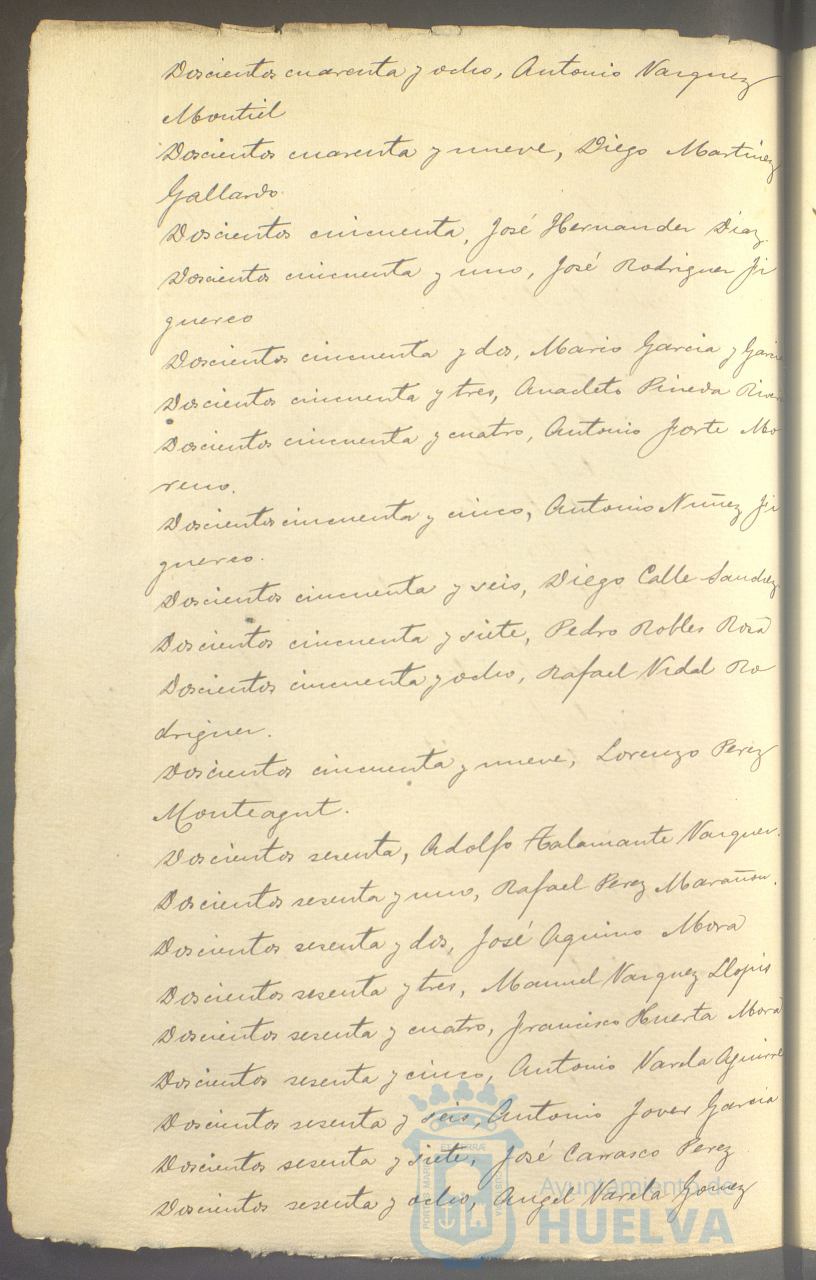 Doscientos cuarenta y ocho, Antonio Vazquez
Montiel
Doscientos cuarenta y nueve, Diego Martinez
Gallardo.
Doscientos cincuenta, José Hernandez Diaz.
Doscientos cincuenta y uno, José Rodriguez Fi
guereo
Doscientos cincuenta y dos, Mario Garcia y Garci
Doscientos cincuenta y tres, Anacleto Pineda River
Doscientos cincuenta y cuatro, Antonio Forte Mo
reno.
Doscientos cincuenta y cinco, Antonio Nuñez Fi
guereo.
Doscientos cincuenta y seis, Diego Calle Sanchez
Doscientos cincuenta y siete, Pedro Robles Rosa
Doscientos cincuenta y ocho, Rafael Vidal Ro
driguez.
Doscientos cincuenta y nueve, Lorenzo Perez
Monteagut.
Doscientos sesenta, Adolfo Talamante Vazquez.
Doscientos sesenta y uno, Rafael Perez Marañon.
Doscientos sesenta y dos, José Aquino Mora
Doscientos sesenta y tres, Manuel Vazquez Llopis
Doscientos sesenta y cuatro, Francisco Huerta Mora
Doscientos sesenta y cinco, Antonio Varela Aguirre
Doscientos sesenta y seis, Antonio Jover Garcia
Doscientos sesenta y siete, José Carrasco Perez
Doscientos sesenta y ocho, Angel Varela Gomez
Ayuntamiento de
HUELVA